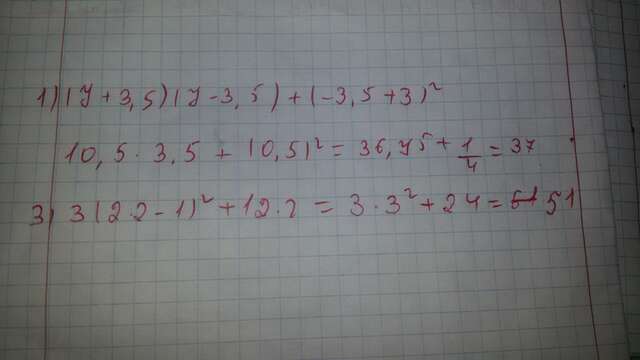 1) (7 + 3,5)(7 - 3,5) + (-3,5 + 3)²
10,5 · 3,5 + (0,5)² = 36,75 + 1/4 = 37
3) 3(2·2 - 1)² + 12·2 = 3·3² + 24 = 51